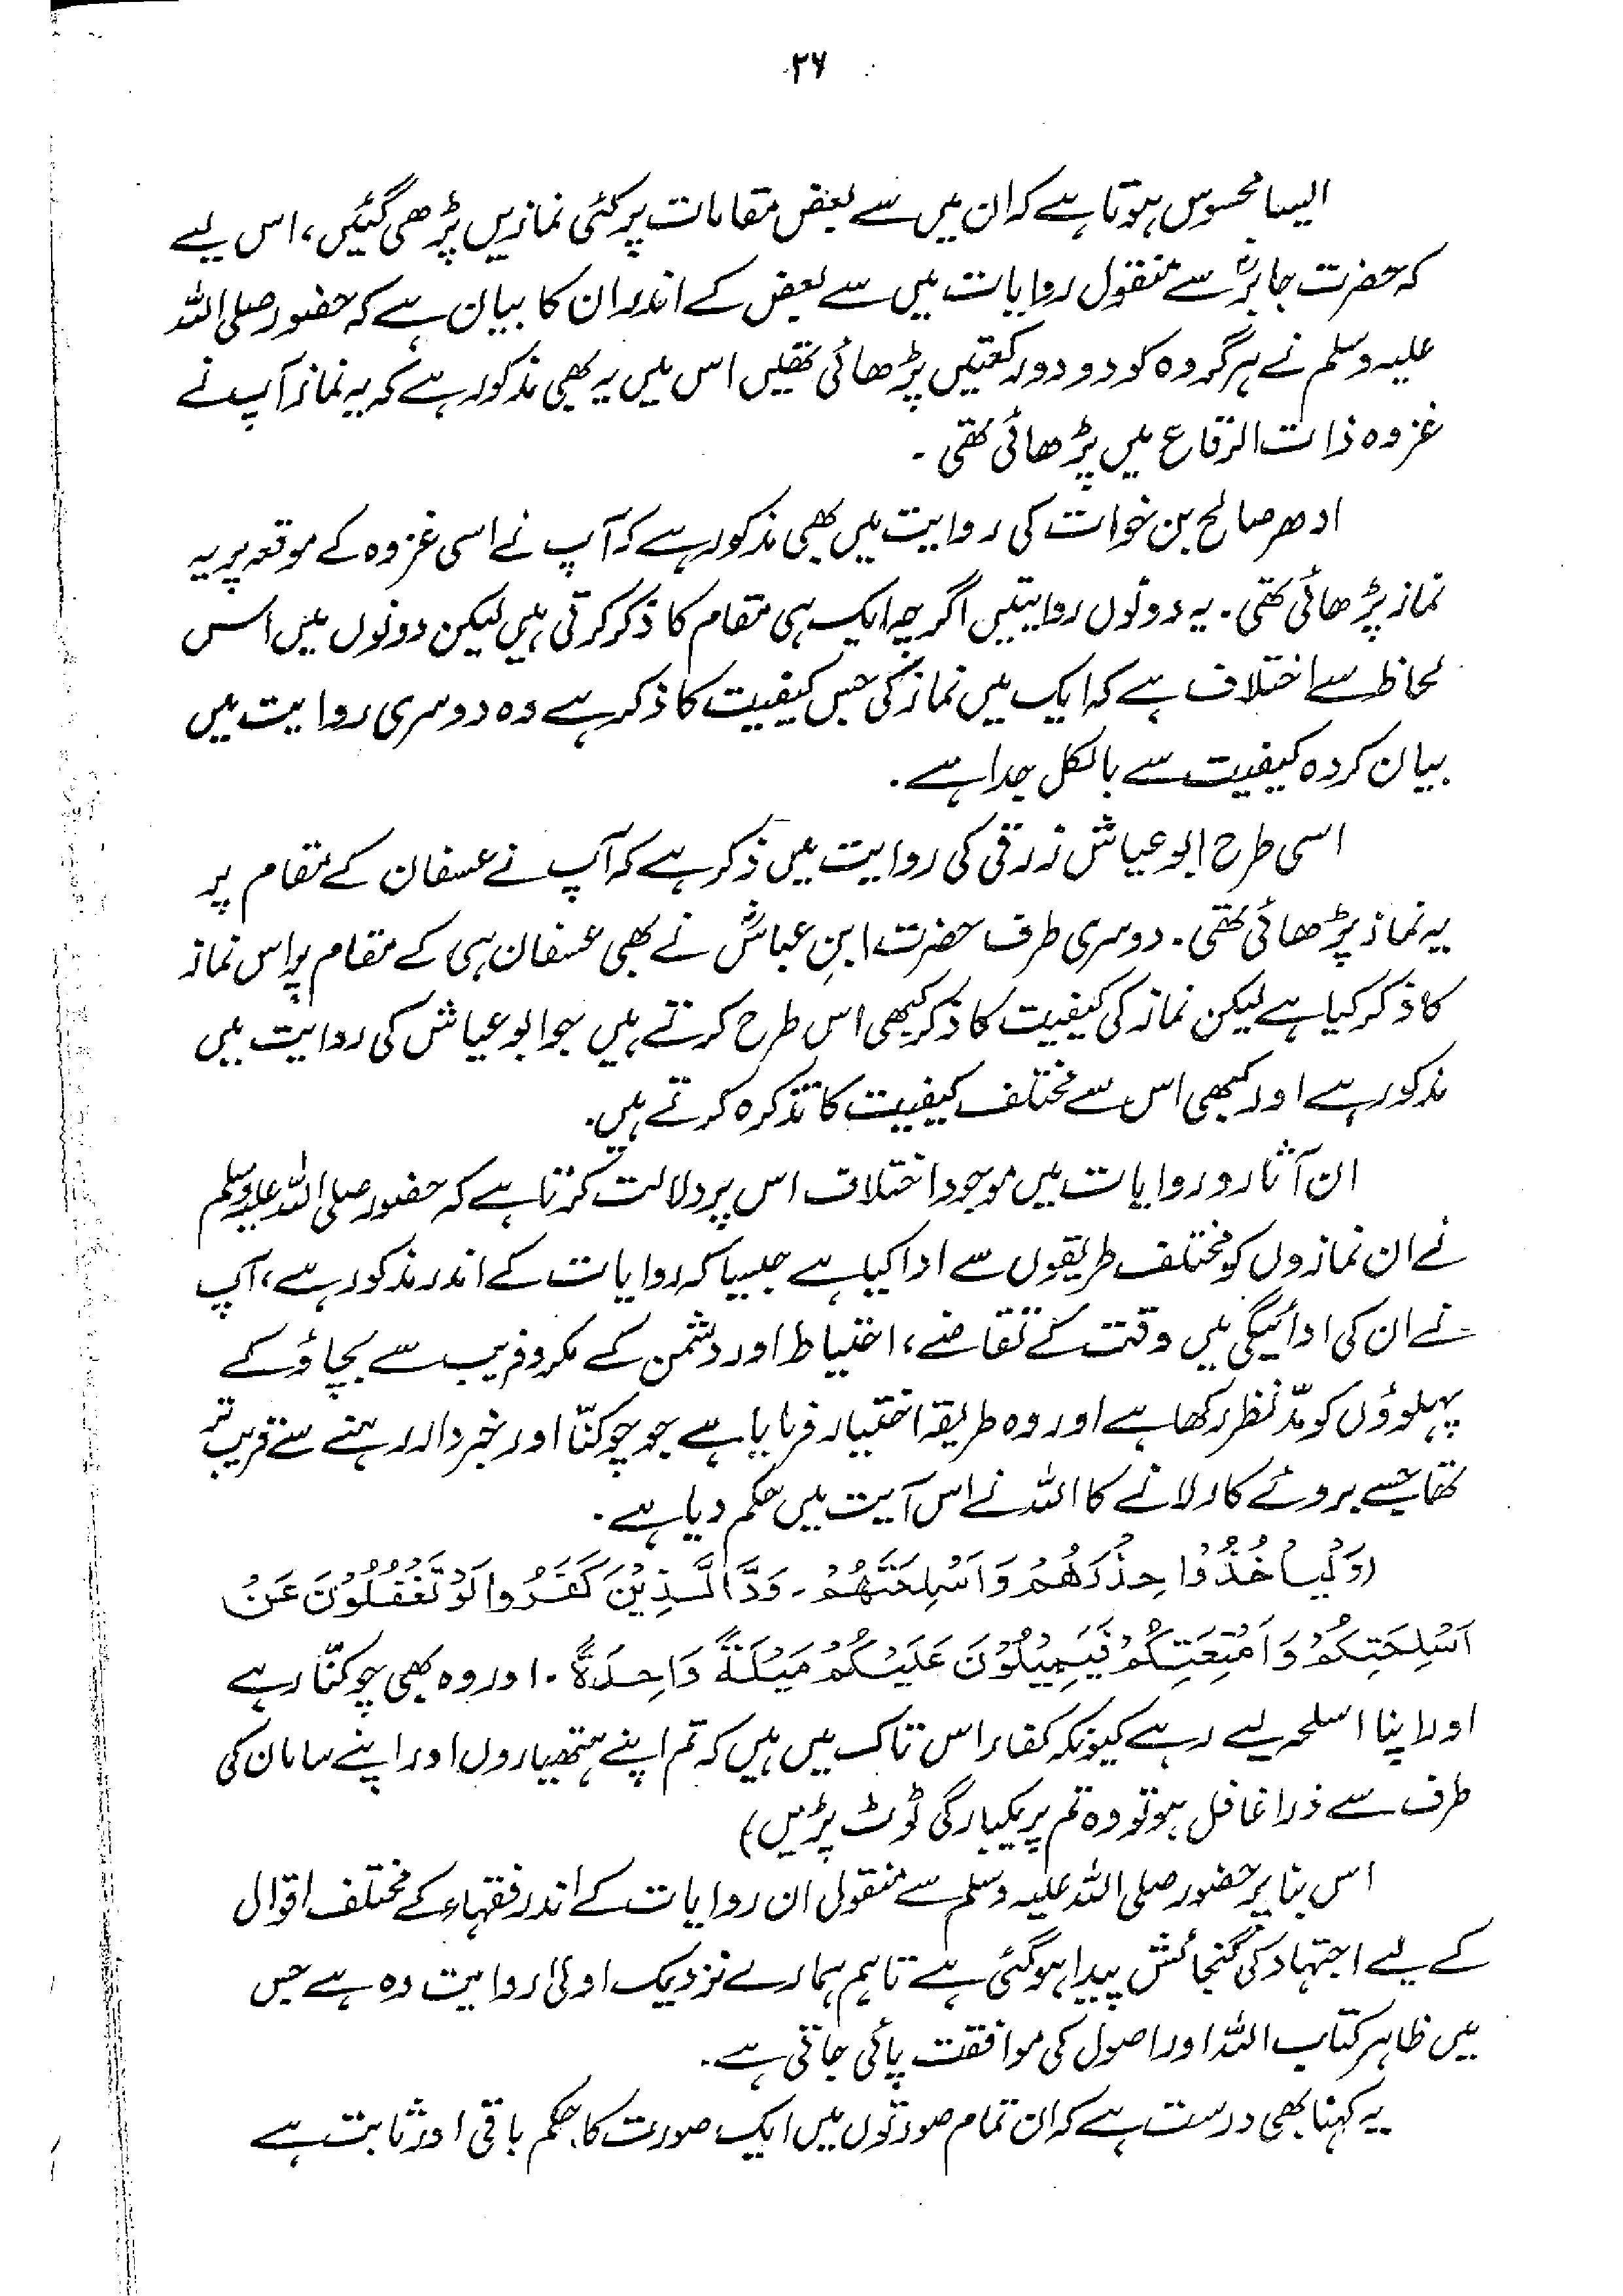 ۲۶
ایسا محسوس ہوتا ہے کہ ان میں سے بعض مقامات پر کئی نمازیں پڑھی گئیں، اس لیے
کہ حضرت جابرؓ سے منقول روایات میں سے بعض کے اندر ان کا بیان ہے کہ حضور صلی اللہ
علیہ وسلم نے ہر گروہ کو دو دو رکعتیں پڑھائی تھیں اس میں یہ بھی مذکور ہے کہ یہ نماز آپ نے
غزوہ ذات الرقاع میں پڑھائی تھی۔
ادھر صالح بن خوات کی روایت میں بھی مذکور ہے کہ آپ نے اسی غزوہ کے موقعہ پر یہ
نماز پڑھائی تھی۔ یہ دونوں روایتیں اگرچہ ایک ہی مقام کا ذکر کرتی ہیں لیکن دونوں میں اس
لحاظ سے اختلاف ہے کہ ایک میں نماز کی جس کیفیت کا ذکر ہے وہ دوسری روایت میں
بیان کردہ کیفیت سے بالکل جدا ہے۔
اسی طرح ابو عیاش زرقی کی روایت میں ذکر ہے کہ آپ نے عسفان کے مقام پر
یہ نماز پڑھائی تھی۔ دوسری طرف حضرت ابنِ عباسؓ نے بھی عسفان ہی کے مقام پر اس نماز
کا ذکر کیا ہے لیکن نماز کی کیفیت کا ذکر کبھی اس طرح کرتے ہیں جو ابو عیاش کی روایت میں
مذکور ہے اور کبھی اس سے مختلف کیفیت کا تذکرہ کرتے ہیں۔
ان آثار و روایات میں موجود اختلاف اس پر دلالت کرتا ہے کہ حضور صلی اللہ علیہ وسلم
نے ان نمازوں کو مختلف طریقوں سے ادا کیا ہے جیسا کہ روایات کے اندر مذکور ہے، آپ
نے ان کی ادائیگی میں وقت کے تقاضے، احتیاط اور دشمن کے مکر و فریب سے بچاؤ کے
پہلوؤں کو مدّنظر رکھا ہے اور وہ طریقہ اختیار فرمایا ہے جو چوکنّا اور خبردار رہنے سے قریب تر
تھا جسے بروئے کار لانے کا اللہ نے اس آیت میں حکم دیا ہے۔
(وَلْيَاْخُذُوْا حِذْرَهُمْ وَاَسْلِحَتَهُمْ۔ وَدَّ الَّذِيْنَ كَفَرُوا لَوْ تَغْفُلُوْنَ عَنْ
اَسْلِحَتِكُمْ وَاَمْتِعَتِكُمْ فَيَمِيْلُوْنَ عَلَيْكُمْ مَيْلَةً وَاحِدَةً۔ اور وہ بھی چوکنّا رہے
اور اپنا اسلحہ لیے رہے کیونکہ کفار اس تاک میں ہیں کہ تم اپنے ہتھیاروں اور اپنے سامان کی
طرف سے ذرا غافل ہو تو وہ تم پر یکبارگی ٹوٹ پڑیں)
اس بنا پر حضور صلی اللہ علیہ وسلم سے منقول ان روایات کے اندر فقہاء کے مختلف اقوال
کے لیے اجتہاد کی گنجائش پیدا ہوگئی ہے تاہم ہمارے نزدیک اولیٰ روایت وہ ہے جس
میں ظاہر کتاب اللہ اور اصول کی موافقت پائی جاتی ہے۔
یہ کہنا بھی درست ہے کہ ان تمام صورتوں میں ایک صورت کا حکم باقی اور ثابت ہے